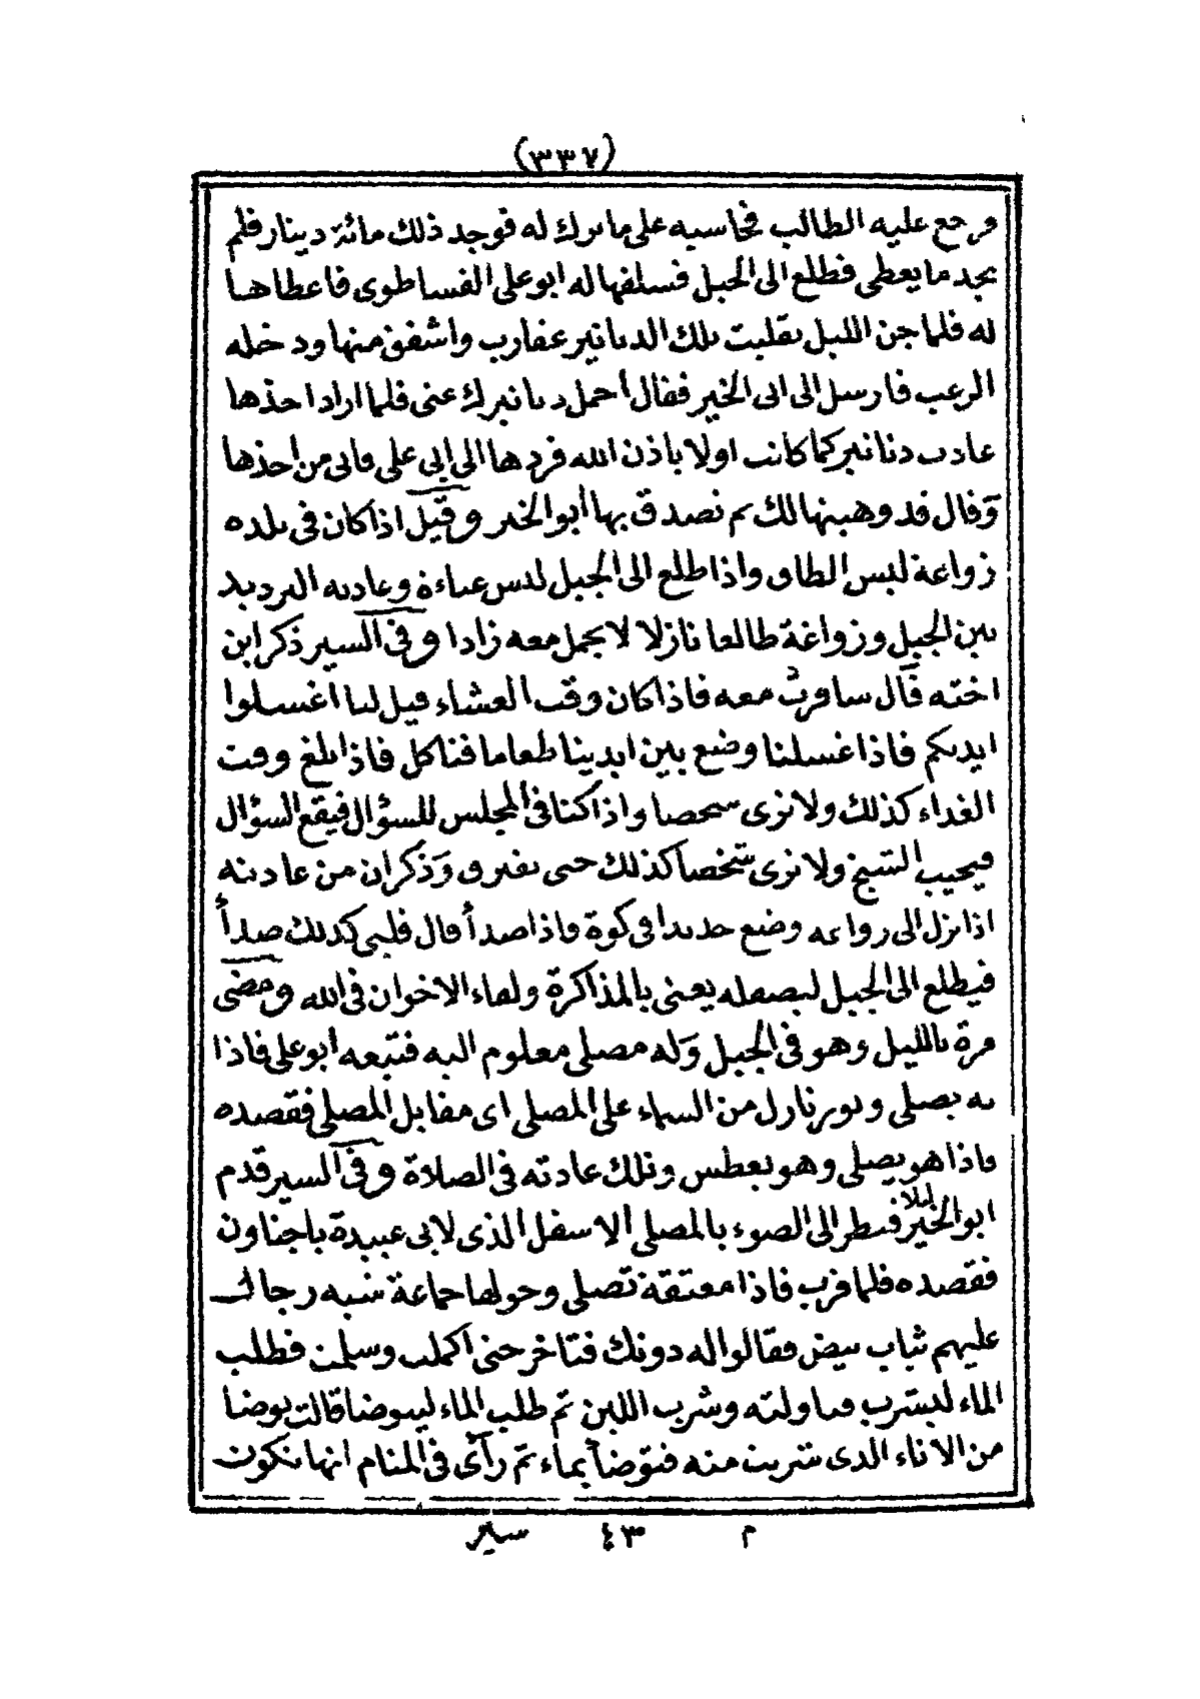 (٣٣٧)
فرجع عليه الطالب فحاسبه على ما ترك له فوجد ذلك مائة دينار فلم
يجد ما يعطى فطلع الى الجبل فسلفها له ابو على الفساطوى فاعطاها
له فلما جن الليل تقلبت تلك الدنانير عقارب واشفق منها ودخله
الرعب فارسل الى ابى الخير فقال أحمل دنانيرك عنى فلما اراد اخذها
عادت دنانير كما كانت اولا باذن الله فردها الى ابى على فابى من اخذها
وقال قد وهبتها لك ثم تصدق بها أبو الخير وقيل اذا كان فى بلده
زواغة لبس الطاق واذا طلع الى الجبل لبس عباءة وعادته الترديد
بين الجبل وزواغة طالعا نازلا لا يحمل معه زادا وفى السير ذكر ابن
اخته قال سافرت معه فاذا كان وقت العشاء قيل لنا اغسلوا
ايديكم فاذا غسلنا وضع بين ايدينا طعاما فناكل فاذا بلغ وقت
الغداء كذلك ولا نرى شخصا واذا كنا فى المجلس للسؤال فيقع السؤال
فيجيب الشيخ ولا نرى شخصا كذلك حتى نفترق وذكر ان من عادته
اذا نزل الى زواغه وضع حديدا فى كوة فاذا صدأ قال قلبى كذلك صدأ
فيطلع الى الجبل ليصقله يعنى بالمذاكرة ولقاء الاخوان فى الله ومضى
مرة بالليل وهو فى الجبل وله مصلى معلوم اليه فتبعه أبو على فاذا
به يصلى ونور نازل من السماء على المصلى اى مقابل المصلى فقصده
فاذا هو يصلى وهو يعطس وتلك عادته فى الصلاة وفى السير قدم
ابو الخير ليلا فنظر الى الضوء بالمصلى الاسفل الذى لابى عبيدة باجناون
فقصده فلما قرب فاذا معتقة تصلى وحولها جماعة شبه رجال
عليهم ثياب بيض فقالوا له دونك فتاخر حتى اكملت وسلمت فطلب
الماء ليشرب فناولته وشرب اللبن ثم طلب الماء ليتوضا قالت توضا
من الاناء الذى شربت منه فتوضأ بماء ثم رأى فى المنام انها تكون
م ٤٣ سير